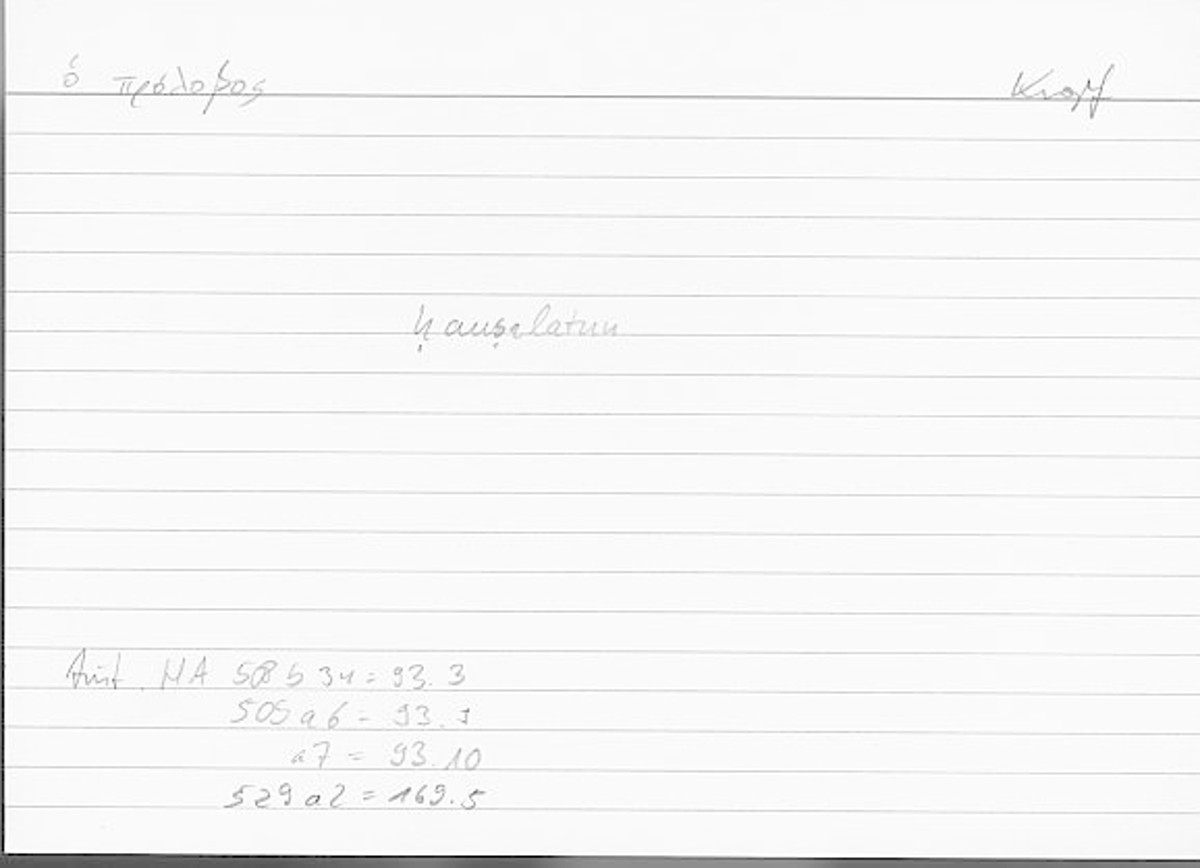 ὁ πρόλοβος Kropf
ḥauṣalatun
Arist. HA 508 b 34 = 93. 3
509 a 6 = 93. 9
a7 = 93.10
529 a2 = 169.5